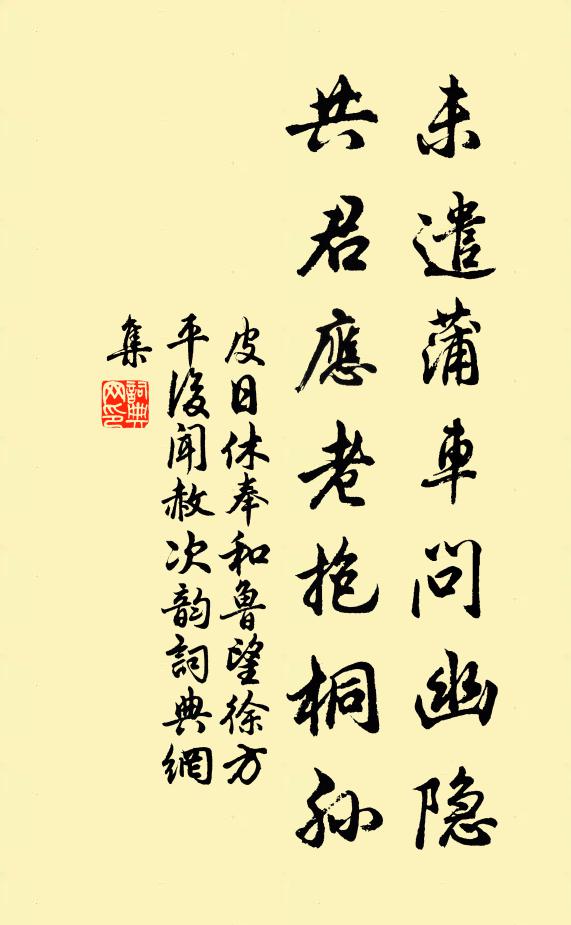 未遣蒲車问幽隐
共君應老抱桐孙
皮日休奉和魯望徐方
平後闻赦次韵詞典網
集
詞典
网印